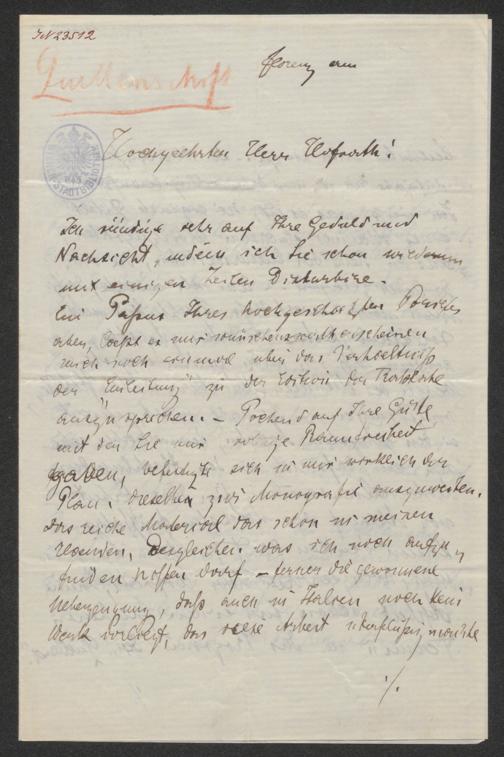 IN 23512
Quellenschrift
Florenz am
Hochgeehrter Herr Hofrath!
Ich sündige sehr auf Ihre Geduld und
Nachsicht, indem ich Sie schon wiederum
mit einigen Zeilen Disturbire.
Ein Passus Ihres hochgeschätzten Briefes
aber, läßt es mir wünschenswerth erscheinen
mich noch einmal über das Verhältniß
der "Einleitung" zu der Edition der
auszusprechen. – Pochend auf Ihre Güte
mit den Sie mir Raumfreiheit
gaben, befestigte sich in mir wirklich der
Plan, dieselbe zur Monografie auszuweiten.
Das reiche Material das schon in meinen
Haenden, Dergleichen was ich noch aufzu
finden hoffen darf – ferner die gewonnene
Ueberzeugung, daß auch in Italien noch kein
Werk vorliegt, das diese Arbeit überflüssig machte
./.